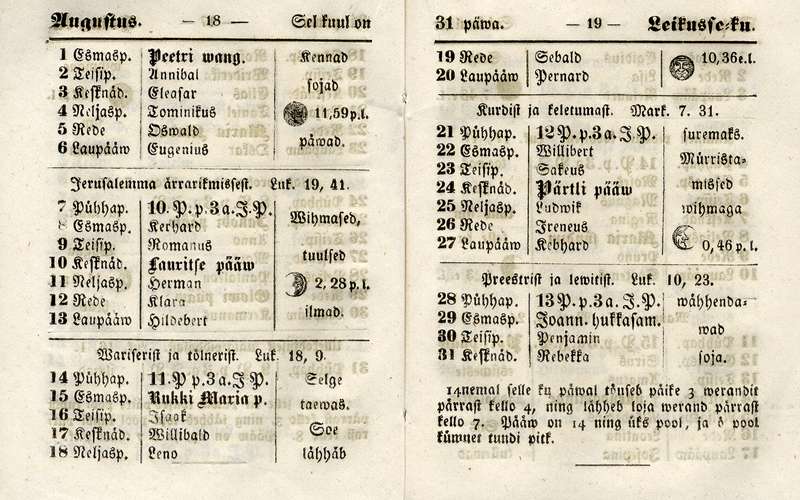 Augustus. — 18 — Sel kuul on
1 Esmasp. Peetri wang. Kennad
2 Teisip. Annibal
3 Keſknäd. Eleaſar ſojad
4 Neljasp. Tominikus 11,59 p. l.
5 Rede Oswald
6 Laupääw Eugenius päwad.
Jeruſalemma ärrarikmiſſeſt. Luk. 19, 41.
7 Pühhap. 10. P. p. 3 a. J. P. Wihmaſed,
8 Esmasp. Kerhard
9 Teisip. Romanus tuulſed
10 Keſknäd. Lauritſe pääw
11 Neljasp. Herman 2, 28 p. l.
12 Rede Klara
13 Laupääw Hildebert ilmad.
Wariſeriſt ja tölneriſt. Luk. 18, 9.
14 Pühhap. 11. P p. 3 a. J. P. Selge
15 Esmasp. Rukki Maria p.
16 Teisip. Iſaak taewas.
17 Keſknäd. Willibald Soe
18 Neljasp. Leno lähhäb
31 päwa. — 19 — Leikusſe-ku.
19 Rede Sebald 10, 36 e. l.
20 Laupääw Pernard
Kurdiſt ja keletumaſt. Mark. 7. 31.
21 Pühhap. 12 P. p. 3 a. J. P. ſuremaks.
22 Esmasp. Willibert
23 Teisip. Sakeus Mürriſta-
24 Keſknäd. Pärtli pääw miſſed
25 Neljasp. Ludwik wihmaga
26 Rede Ireneus
27 Laupääw Kebhard 0, 46 p. l.
Preestriſt ja lewitiſt. Luk. 10, 23.
28 Pühhap. 13 P. p. 3 a. J. P. wähhenda-
29 Esmasp. Joann. hukkaſam.
30 Teisip. Penjamin wad
31 Keſknäd. Rebekka ſoja.
14nemal ſelle ku päwal töuſeb päike 3 werandit
pärraſt kello 4, ning lähheb loja werand pärraſt
kello 7. Pääw on 14 ning üks pool, ja ö pool
kümnet tundi pitk.